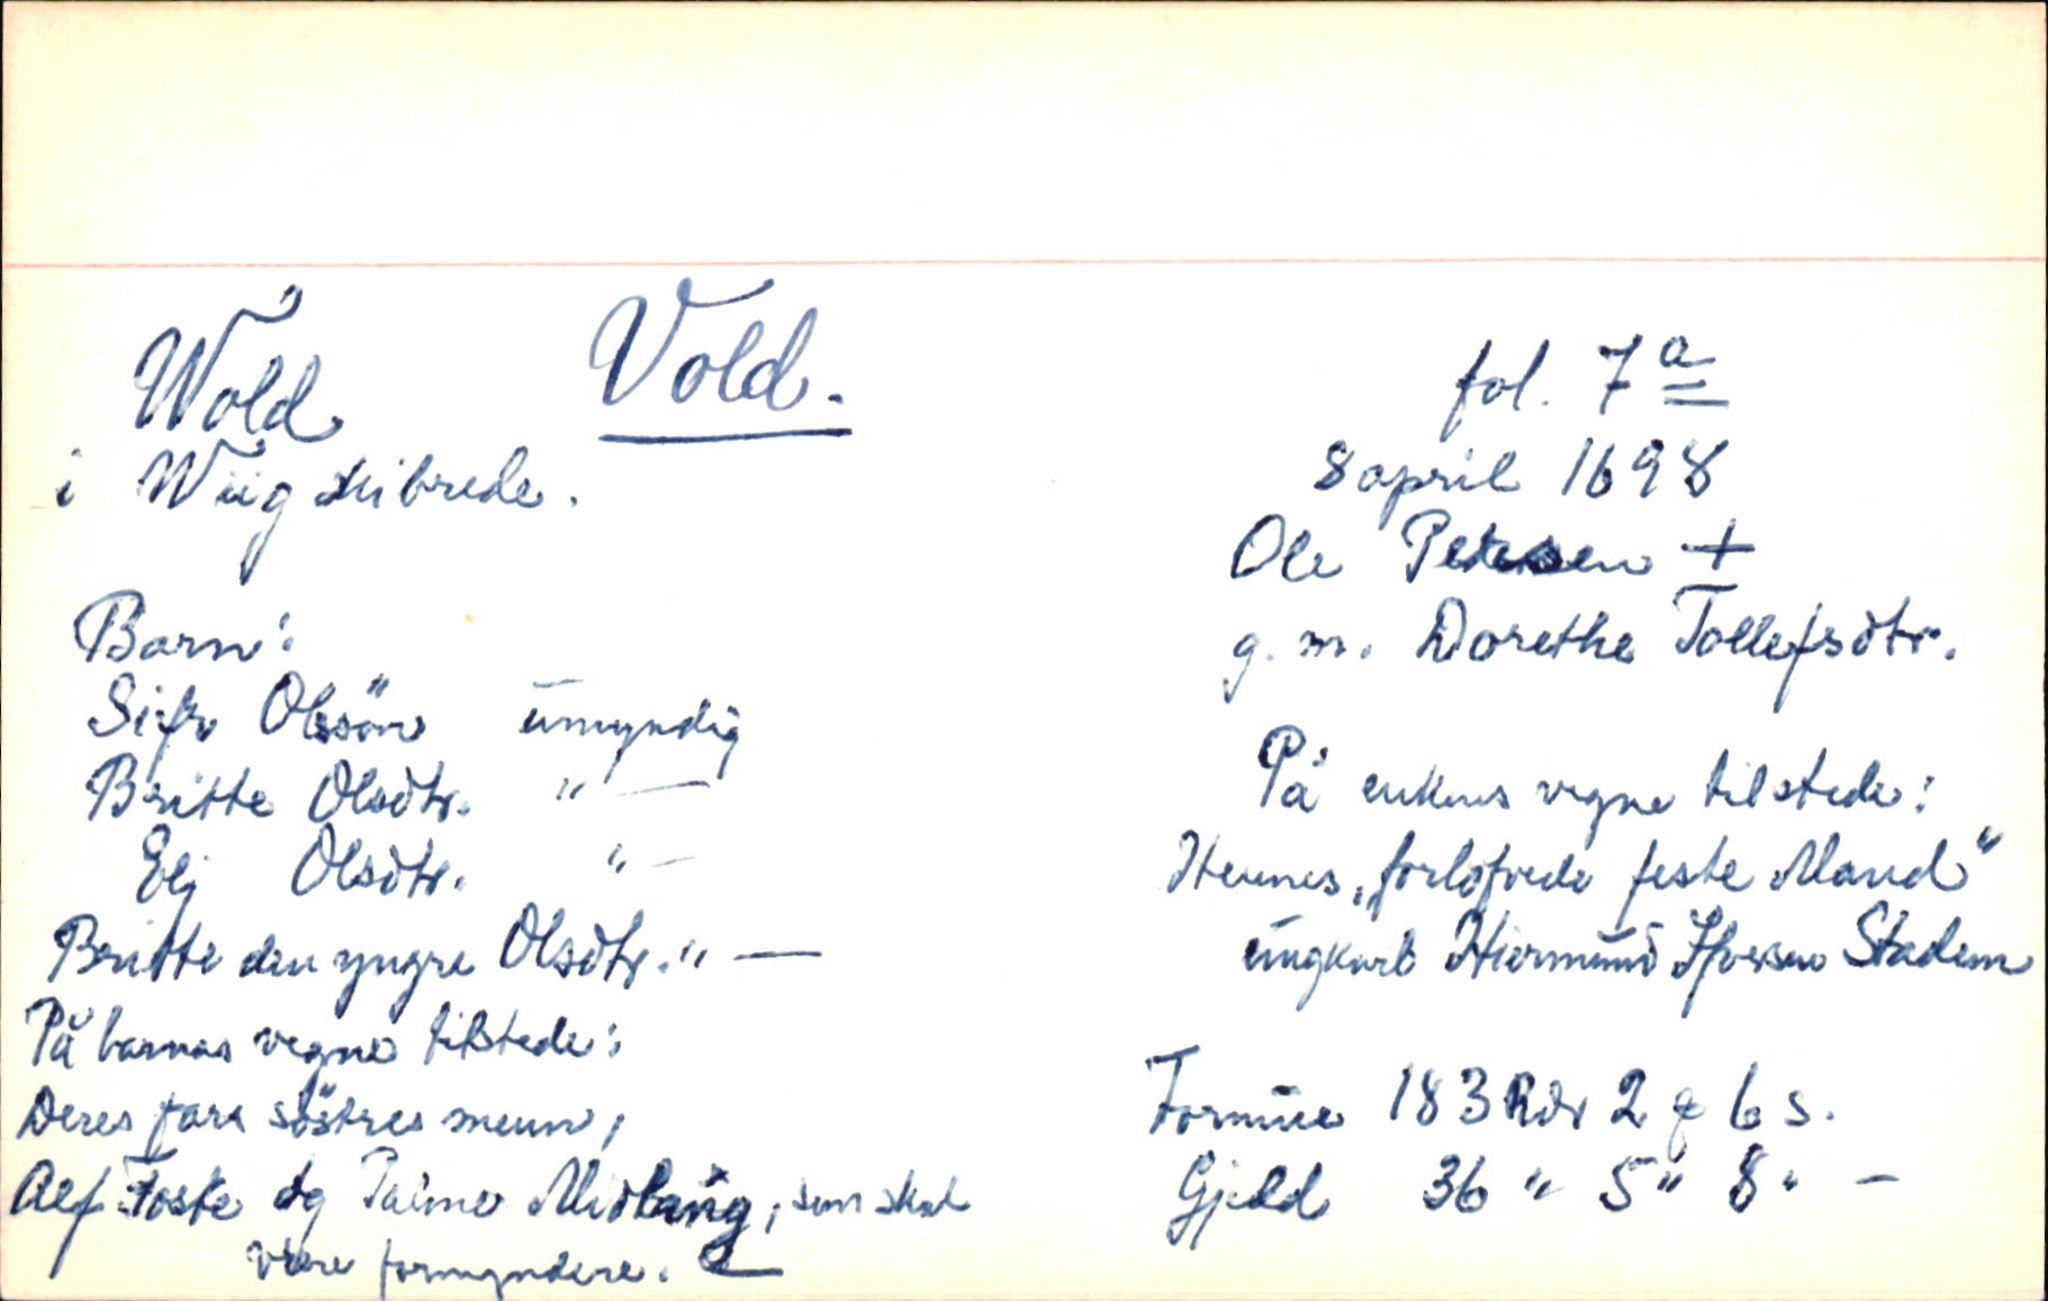 Wold Vold.
i Wiig skibrede.
fol. 7a
8 april 1698
Ole Petersen +
g.m. Dorethe Tollefsdtr.
Barn:
Sifr Olssön umyndig
Britte Olsdtr. " —
Elj Olsdtr. " —
Britte den yngre Olsdtr. " —
På barnas vegne tilstede:
Deres fars söstres menn,
Alf Foske og Palme Midlang, som skal
være formyndere.
På enkens vegne tilstede:
Hennes "forlofvede feste Mand"
ungkarl Hiermund Ifversen Stadem
Formue 183 Rdr 2 ƍ 6 s.
Gjeld 36 " 5 " 8 " —